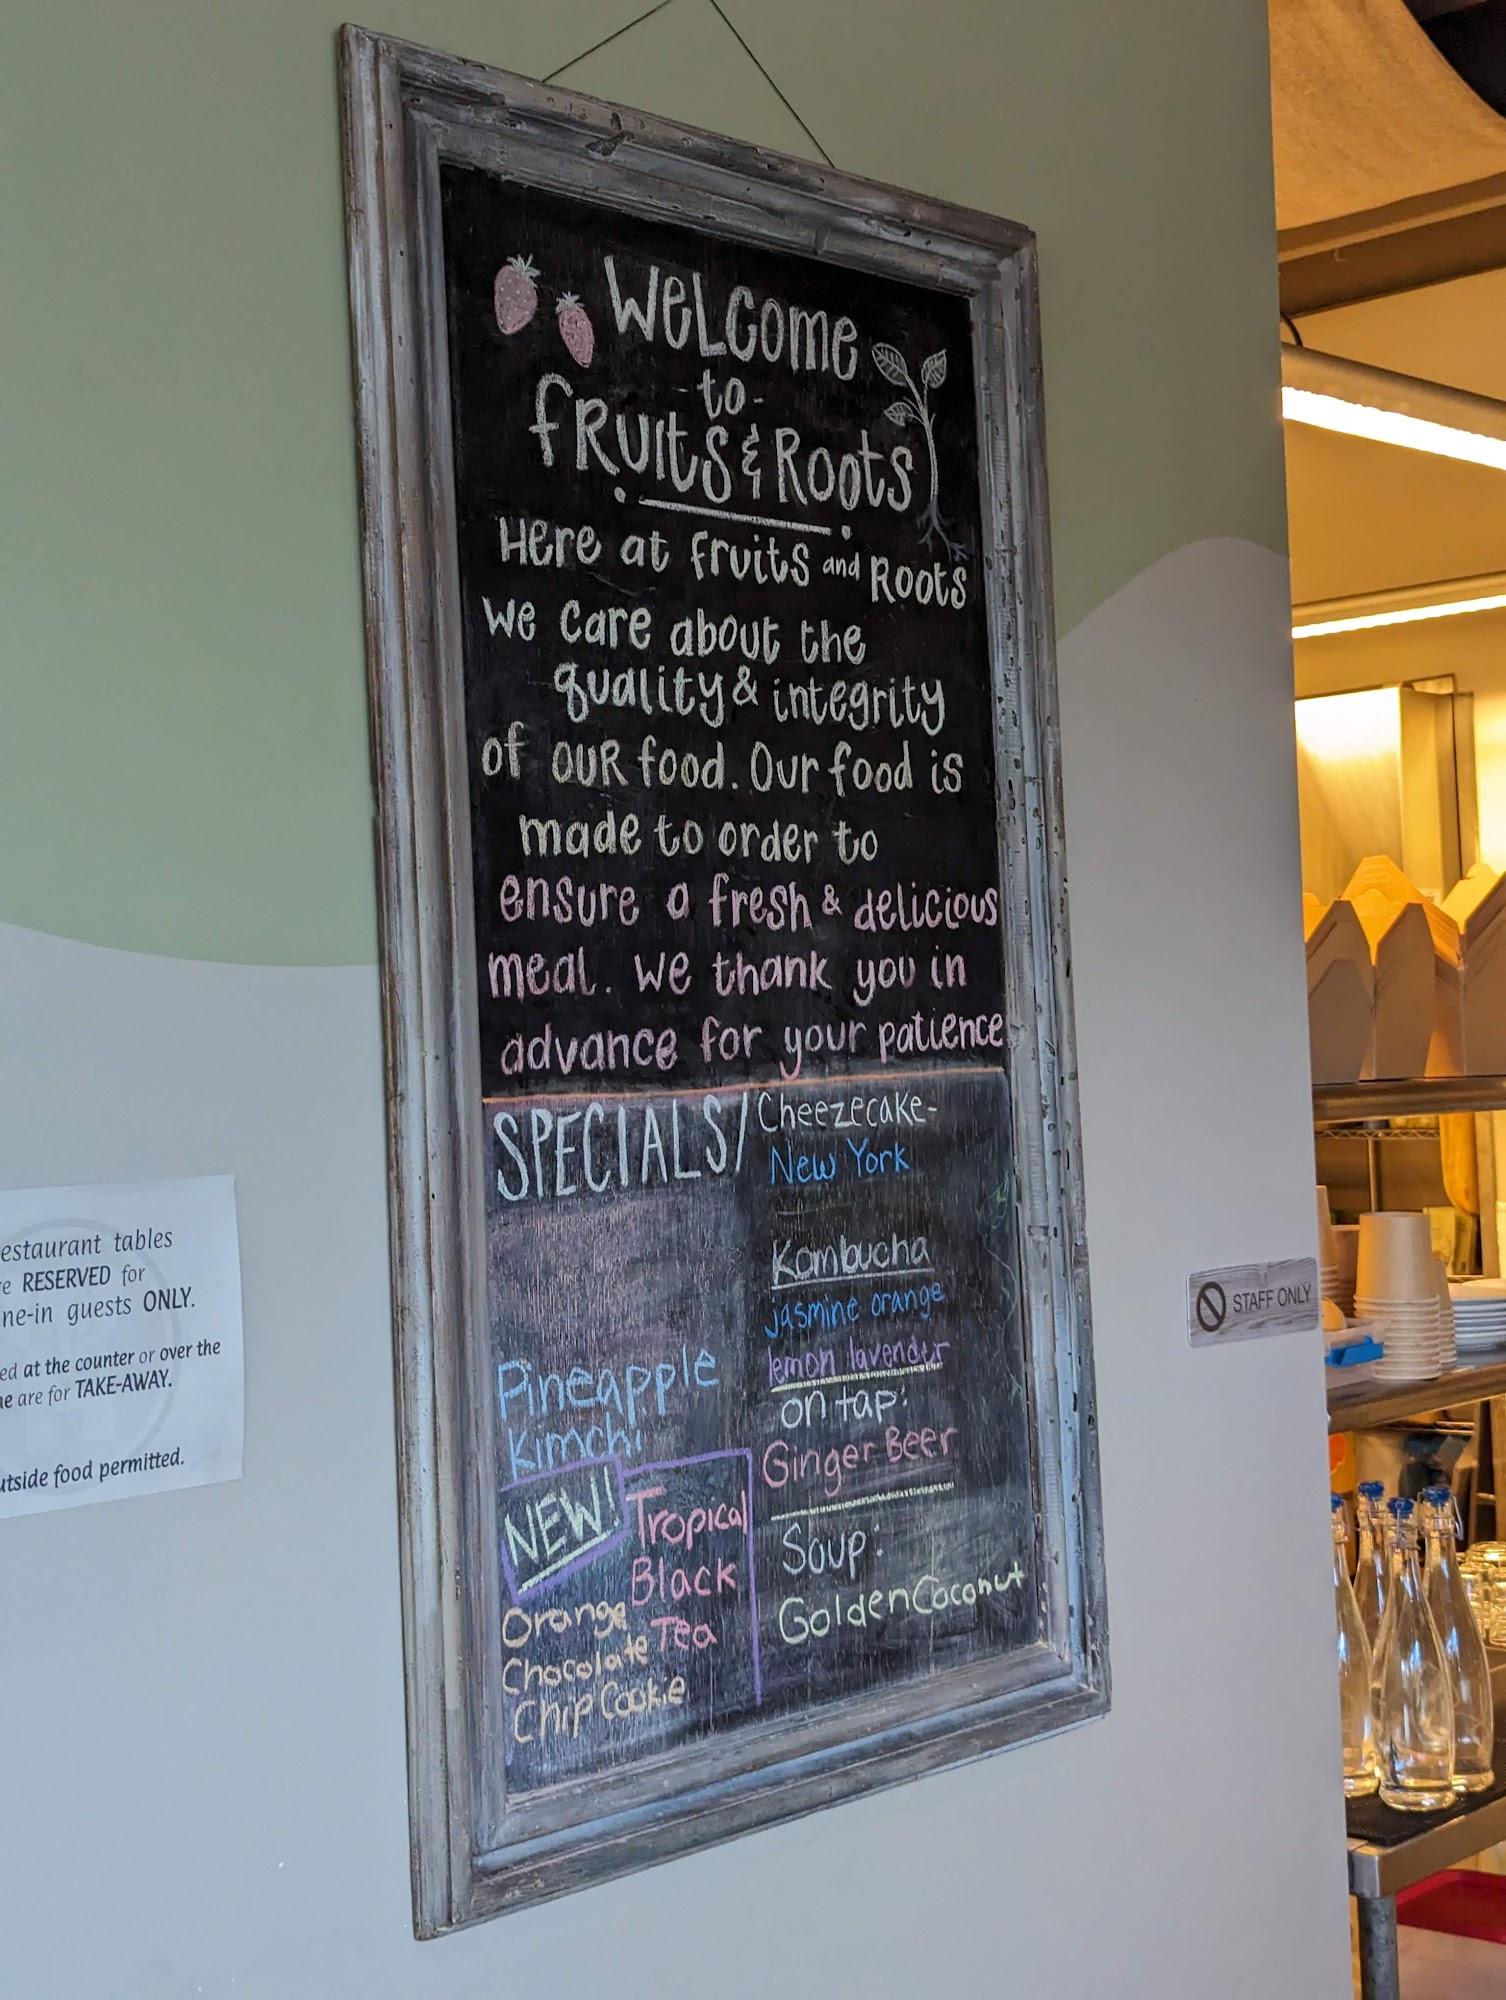 WELCOME
-to-
fRUITS & ROOTS
Here at fruits and ROOTS
we care about the
quality & integrity
of OUR food. Our food is
made to order to
ensure a fresh & delicious
meal. We thank you in
advance for your patience
SPECIALS/
Pineapple
Kimchi
NEW!
Tropical
Black
Tea
Orange
Chocolate
Chip Cookie
Cheezecake-
New York
Kombucha
jasmine orange
lemon lavender
on tap:
Ginger Beer
Soup:
Golden Coconut
tables
RESERVED for
guests ONLY.
at the counter or over the
are for TAKE-AWAY.
food permitted.
STAFF ONLY